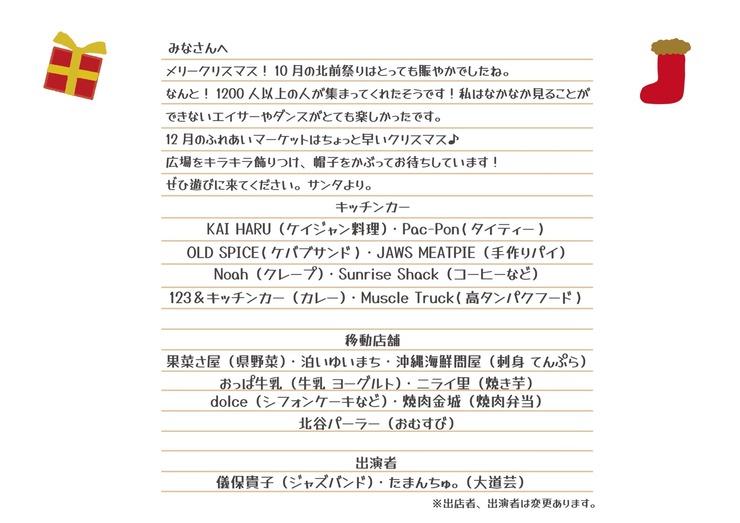 みなさんへ
メリークリスマス！10月の北前祭りはとっても賑やかでしたね。
なんと！1200人以上の人が集まってくれたそうです！私はなかなか見ることが
できないエイサーやダンスがとても楽しかったです。
12月のふれあいマーケットはちょっと早いクリスマス♪
広場をキラキラ飾りつけ、帽子をかぶってお待ちしています！
ぜひ遊びに来てください。サンタより。
キッチンカー
KAI HARU（ケイジャン料理）・Pac-Pon(タイティー)
OLD SPICE(ケパブサンド)・JAWS MEATPIE（手作りパイ）
Noah（クレープ）・Sunrise Shack（コーヒーなど）
123＆キッチンカー（カレー）・Muscle Truck(高タンパクフード)
移動店舗
果菜さ屋（県野菜）・泊いゆいまち・沖縄海鮮問屋（刺身 てんぷら）
おっぱ牛乳（牛乳 ヨーグルト）・ニライ里（焼き芋）
dolce（シフォンケーキなど）・焼肉金城（焼肉弁当）
北谷パーラー（おむすび）
出演者
儀保貴子（ジャズバンド）・たまんちゅ。（大道芸）
※出店者、出演者は変更あります。